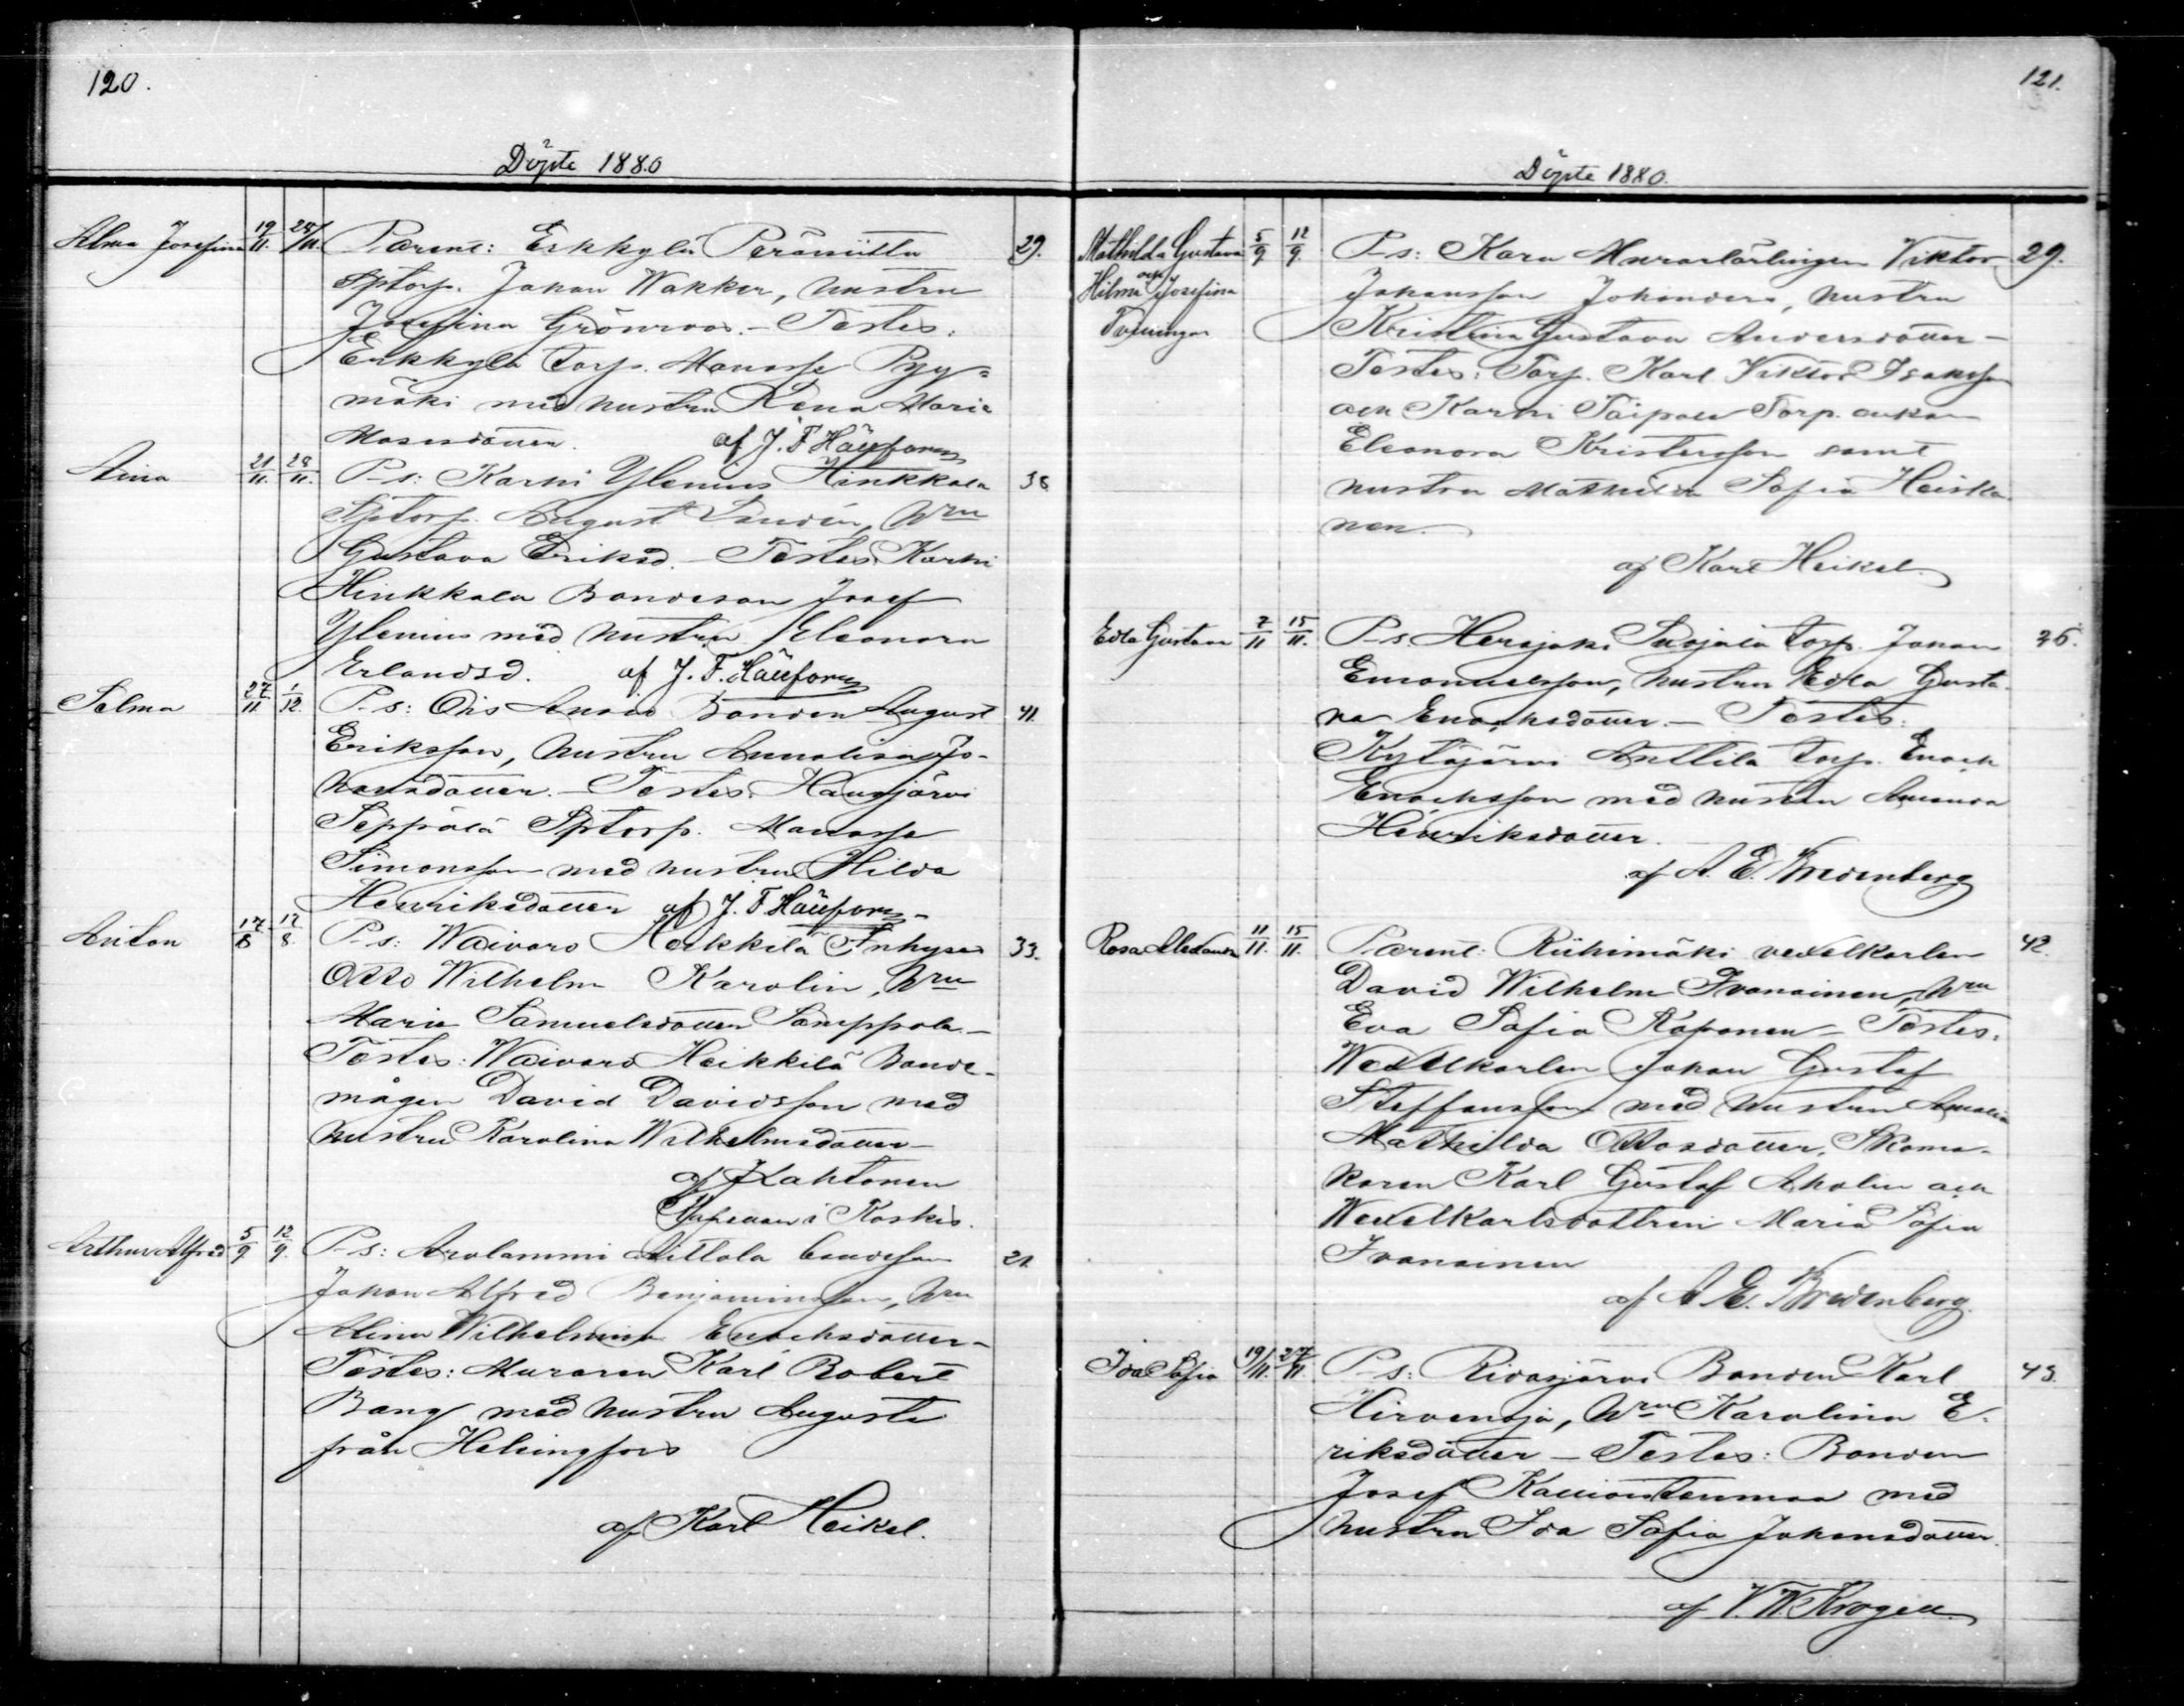 120.
Döpte 1880
Alma Josefina 19/11 28/11 Parent: Erkkylä Perämiittu 29.
Sptorp. Johan Wakker, hustru
Josefina Grönroos. – Testes:
Erkkylä torp. Manasse Pyy=
mäki med hustru Lena Maria
Mosesdotter. af J. F. Häyforss
Aina 21/11 28/11 P-s: Karhi Ylenius Hinkkala 38
Sptorp. August Lindén, Hru
Gustava Eriksd. – Testes: Karhi
Hinkkala Bondeson Josef
Ylenius med hustru Eleonora
Erlandsd. af J. F. Häyforss
Selma 27/11 1/12 P-s: Ois Anssi Bonden August 41.
Eriksson, hustru Annalisa Jo-
hansdotter. – Testes: Hausjärvi
Seppälä Sptorp. Manasse
Simonsson med hustru Hilda
Henriksdotter af J. F. Häyforss
Anton 17/8 17/8 P-s: Waivaro Heikkilä Inhyses 33.
Otto Wilhelm Karolin, Hru
Maria Samuelsdotter Samppala –
Testes: Waivaro Heikkilä Bonde-
mågen David Davidsson med
hustru Karolina Wilhelmsdotter –
af J. Lahtonen
Kapellan i Koskis.
Arthur Alfred 5/9 12/9 P-s: Arolammi Aittola bondeson 21
Johan Alfred Benjaminsson, Hru
Alina Wilhelmina Enochsdotter –
Testes: Muraren Karl Robert
Bang med hustru Augusta
från Helsingfors
af Karl Heikel.
121.
Döpte 1880.
Mathilda Gustava 5/9 12/9 P-s: Kara Murarlärlingen Viktor 29.
och
Hilma Josefina Johansson Johanders, hustru
Tvillingar Kristina Gustava Andersdotter –
Testes: Torp. Karl Viktor Isaksson
och Karhi Taipale Torp. enkan
Eleonora Kristersson samt
hustru Mathilda Sofia Heiska
nen.
af Karl Heikel.
Edla Gustava 7/11 15/11 P-s. Herajoki Suojala torp. Johan 36.
Emanuelsson, hustru Edla Gusta-
va Enochsdotter. – Testes:
Kytäjärvi Anttila torp. Enoch
Enochsson med hustru Amanda
Henriksdotter.
af A. E. Bredenberg
Rosa Alexandra 11/11 15/11 Parent: Riihimäki vexelkarlen 42.
David Wilhelm Ivanainen, Hru
Eva Sofia Koponen – Testes:
Wexelkarlen Johan Gustaf
Steffansson med hustru Amalia
Mathilda Ottosdotter, Skoma-
karen Karl Gustaf Aholin och
Wexelkarlsdottren Maria Sofia
Ivanainen
af A. E. Bredenberg
Ida Sofia 19/11 27/11 P-s: Ridasjärvi Bonden Karl 43.
Hirvenoja, Hru Karolina E-
riksdotter – Testes: Bonden
Josef med
hustru Ida Sofia Johansdotter.
af V. W. Krogell